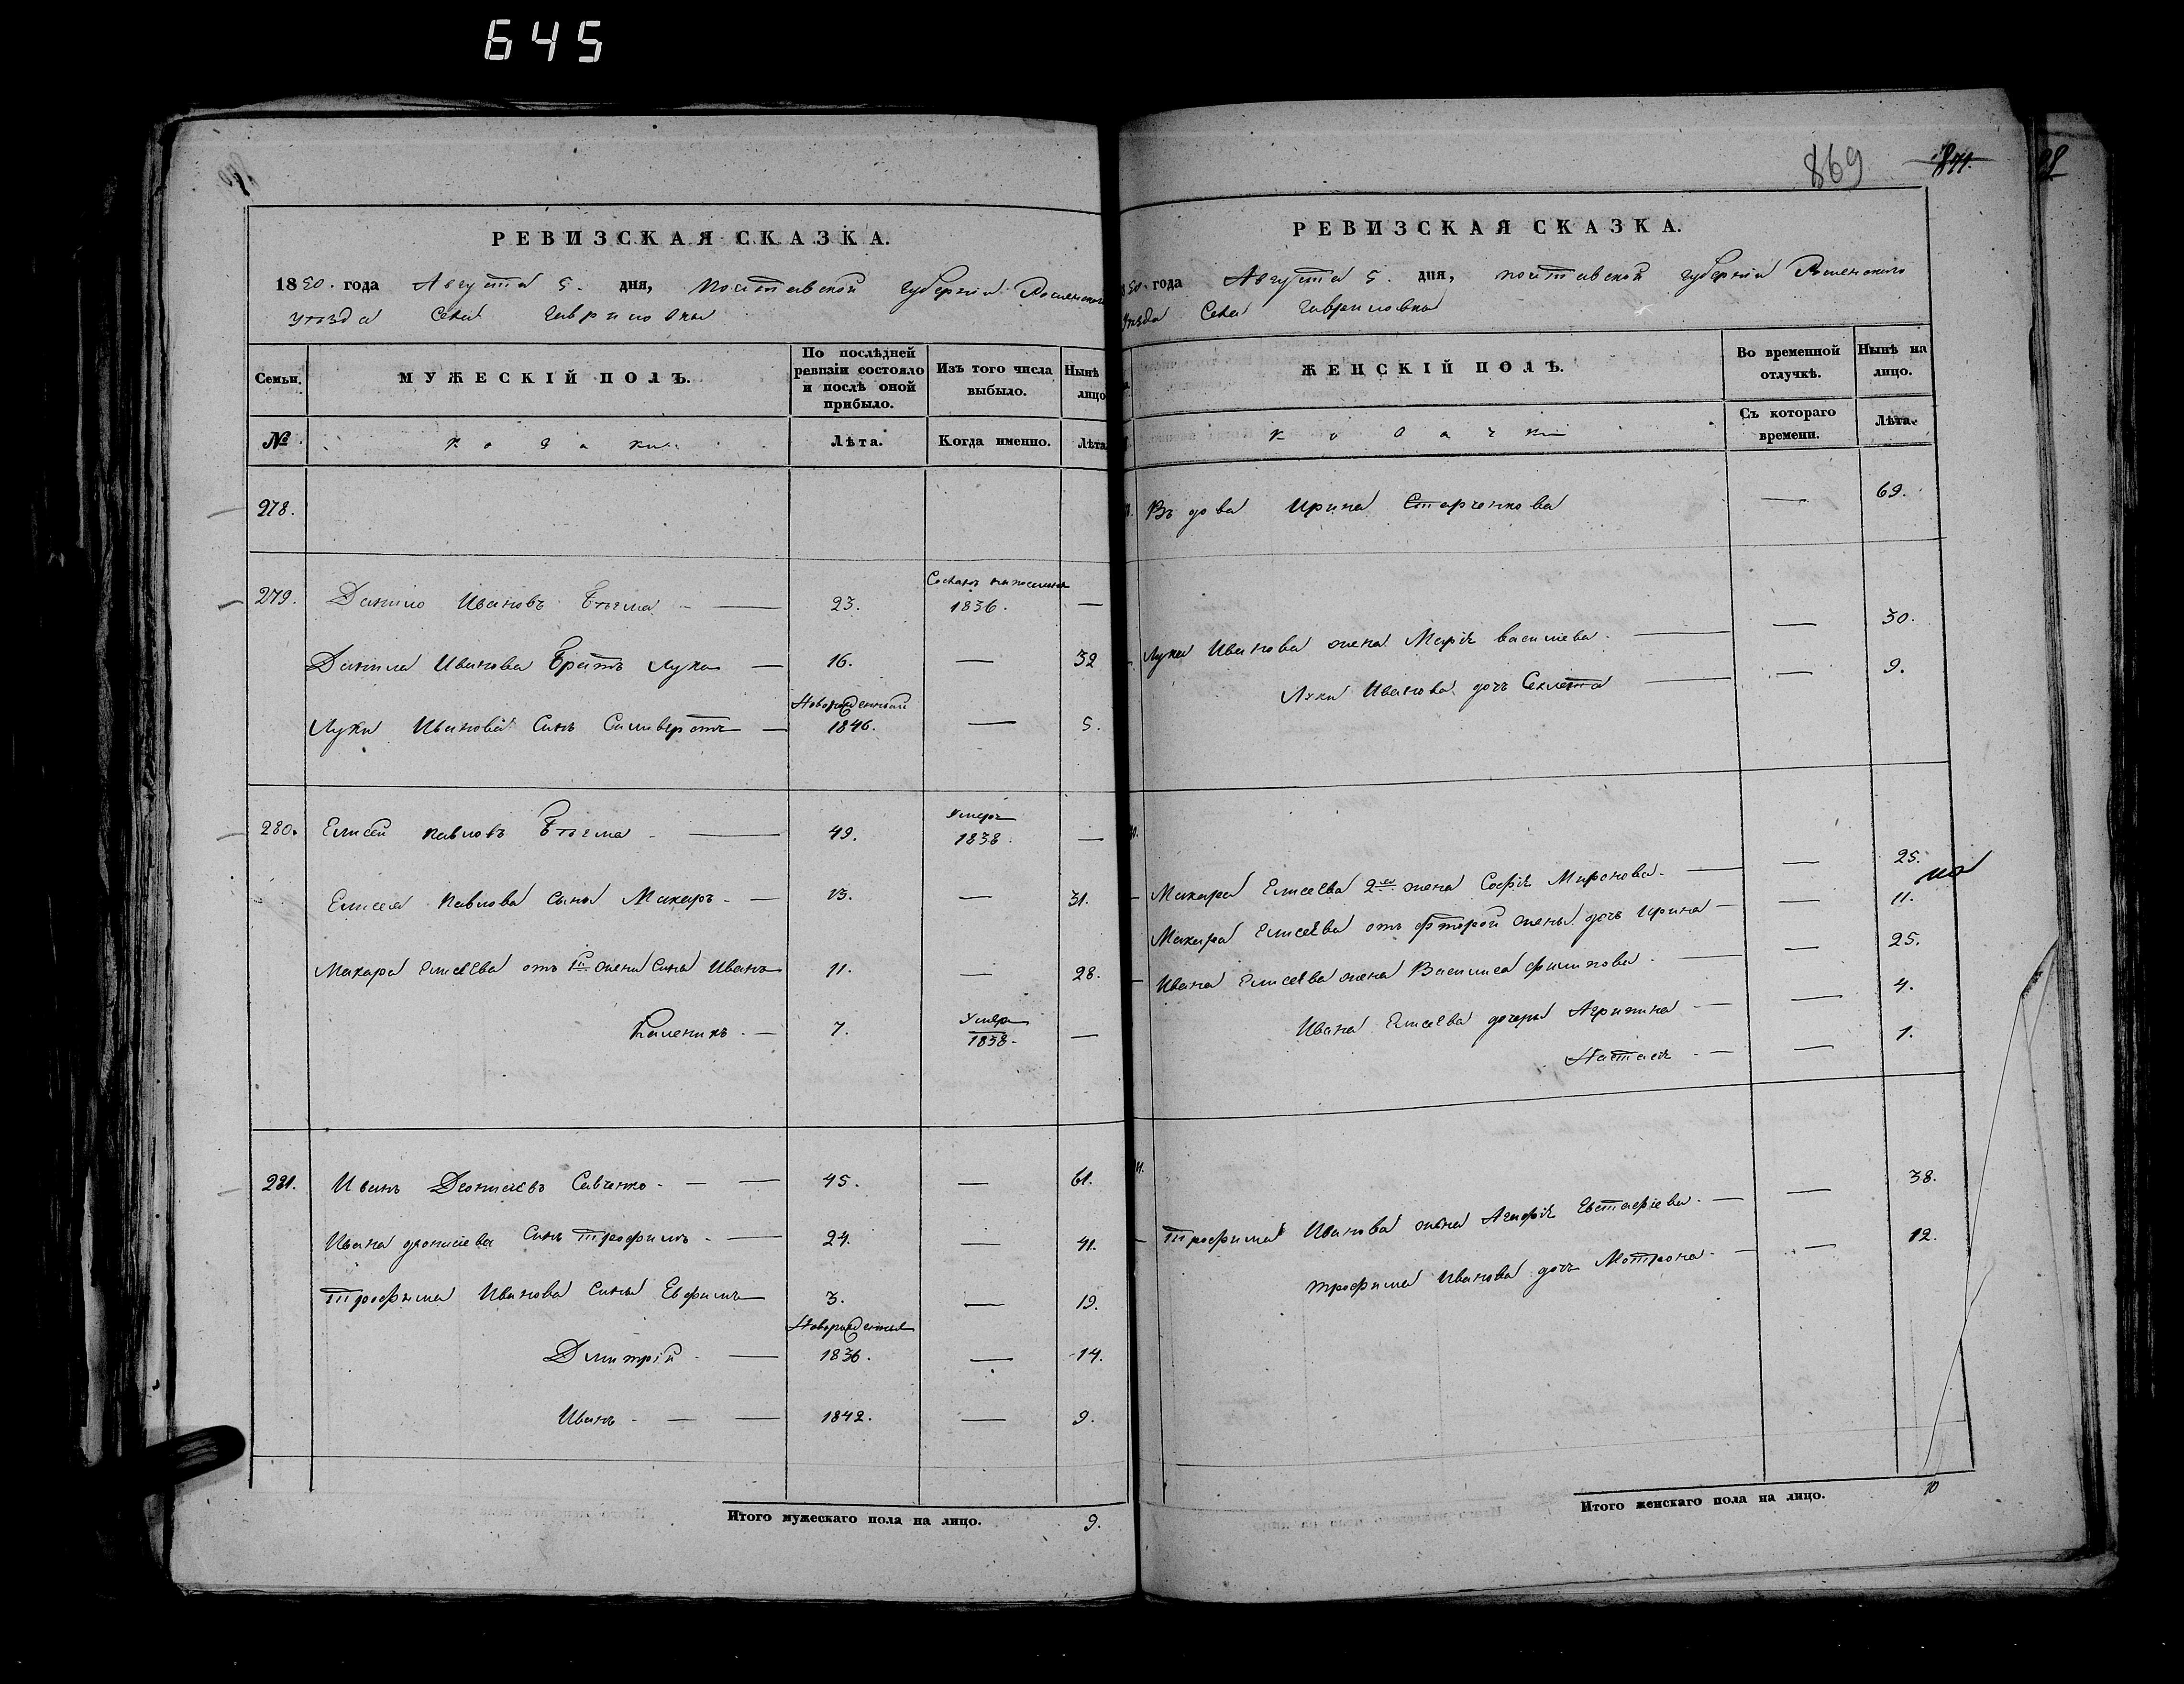 645
869 871.
РЕВИЗСКАЯ СКАЗКА.
1850. года Августа 5. дня, Полтавской губерніи Роменского
уезда Села Гавриловки
Семьи. МУЖЕСКІЙ ПОЛЪ. По послѣдней ревизіи состояло и послѣ оной прибыло. Изъ того числа выбыло. Нынѣ лицо
№ козаки. Лѣта. Когда именно. Лѣта
278.
279. Данило Ивановъ 23. Сосланъ на поселение 1836. —
Данила Иванова Братъ Лука — 16. — 32
Луки Иванова Синъ Силиверстъ — Новорожденный 1846. — 5.
280. Елисей Павловъ — 49. Умеръ 1838. —
Елисея Павлова сынъ Макаръ — 13. — 31.
Макара Елисеева отъ 1й жени Синъ Иванъ 11. — 28.
Каленикъ — 7. Умеръ 1838. —
281. Иванъ Деонисіевъ Савченко — 45. — 61.
Ивана деонисіева Синъ Трофимъ — 24. — 41.
Трофима Иванова Сины Евфимъ 3. — 19.
Димитрій — Новорожденные 1836. — 14.
Иванъ — 1842. — 9.
Итого мужескаго пола на лицо. 9.
РЕВИЗСКАЯ СКАЗКА.
50. года Августа 5. дня, Полтавской губерніи Роменского
Уезда Села Гавриловки
ЖЕНСКІЙ ПОЛЪ. Во временной отлучкѣ. Нынѣ на лицо.
козачки Съ котораго времени. Лѣта.
Въдова Ирина Старченкова — 69.
Луки Иванова жена Марія васильева — 30.
Луки Иванова дочь Секлета — 9.
Макара Елисеева 2я жена Софія Миронова — 25.
Макара Елисеева отъ фторой жены дочь Ирина — 11.
Ивана Елисеева жена Василиса филипова — 25.
Ивана Елисеева дочери Агрипина — 4.
Настасія — 1.
Трофима Иванова жена Агафія Евстафіева — 38.
Трофима Иванова дочь Мотрона — 12.
Итого женскаго пола на лицо. 10